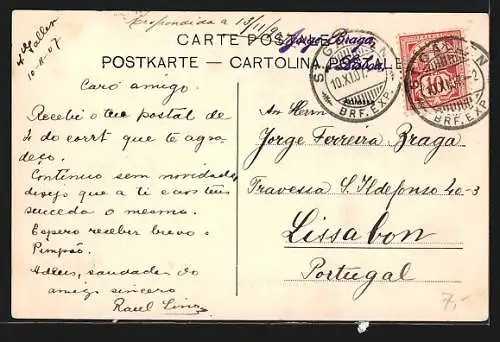 Correspondida a 13/11/9
St Gallen
10-11-07
CARTE POSTALE
Jorge Braga,
Lisboa,
POSTKARTE - CARTOLINA POSTALE
ST. GALLEN
10.XI.07
BRF. EXP.
ST. GALLEN
10.XI.07
BRF. EXP.
10
Caro amigo.
Recebi o teu postal de
4 do corrt que te agra-
deço.
Continuo sem novidade,
desejo que a ti e aos teus
suceda o mesmo.
Espero receber breve o
Pimpão.
Adeus, saudades do
amigo sincero
Raul Lino
An Herrn
Jorge Ferreira Braga
Travessa S. Ildefonso 40-3
Lissabon
Portugal
7,-